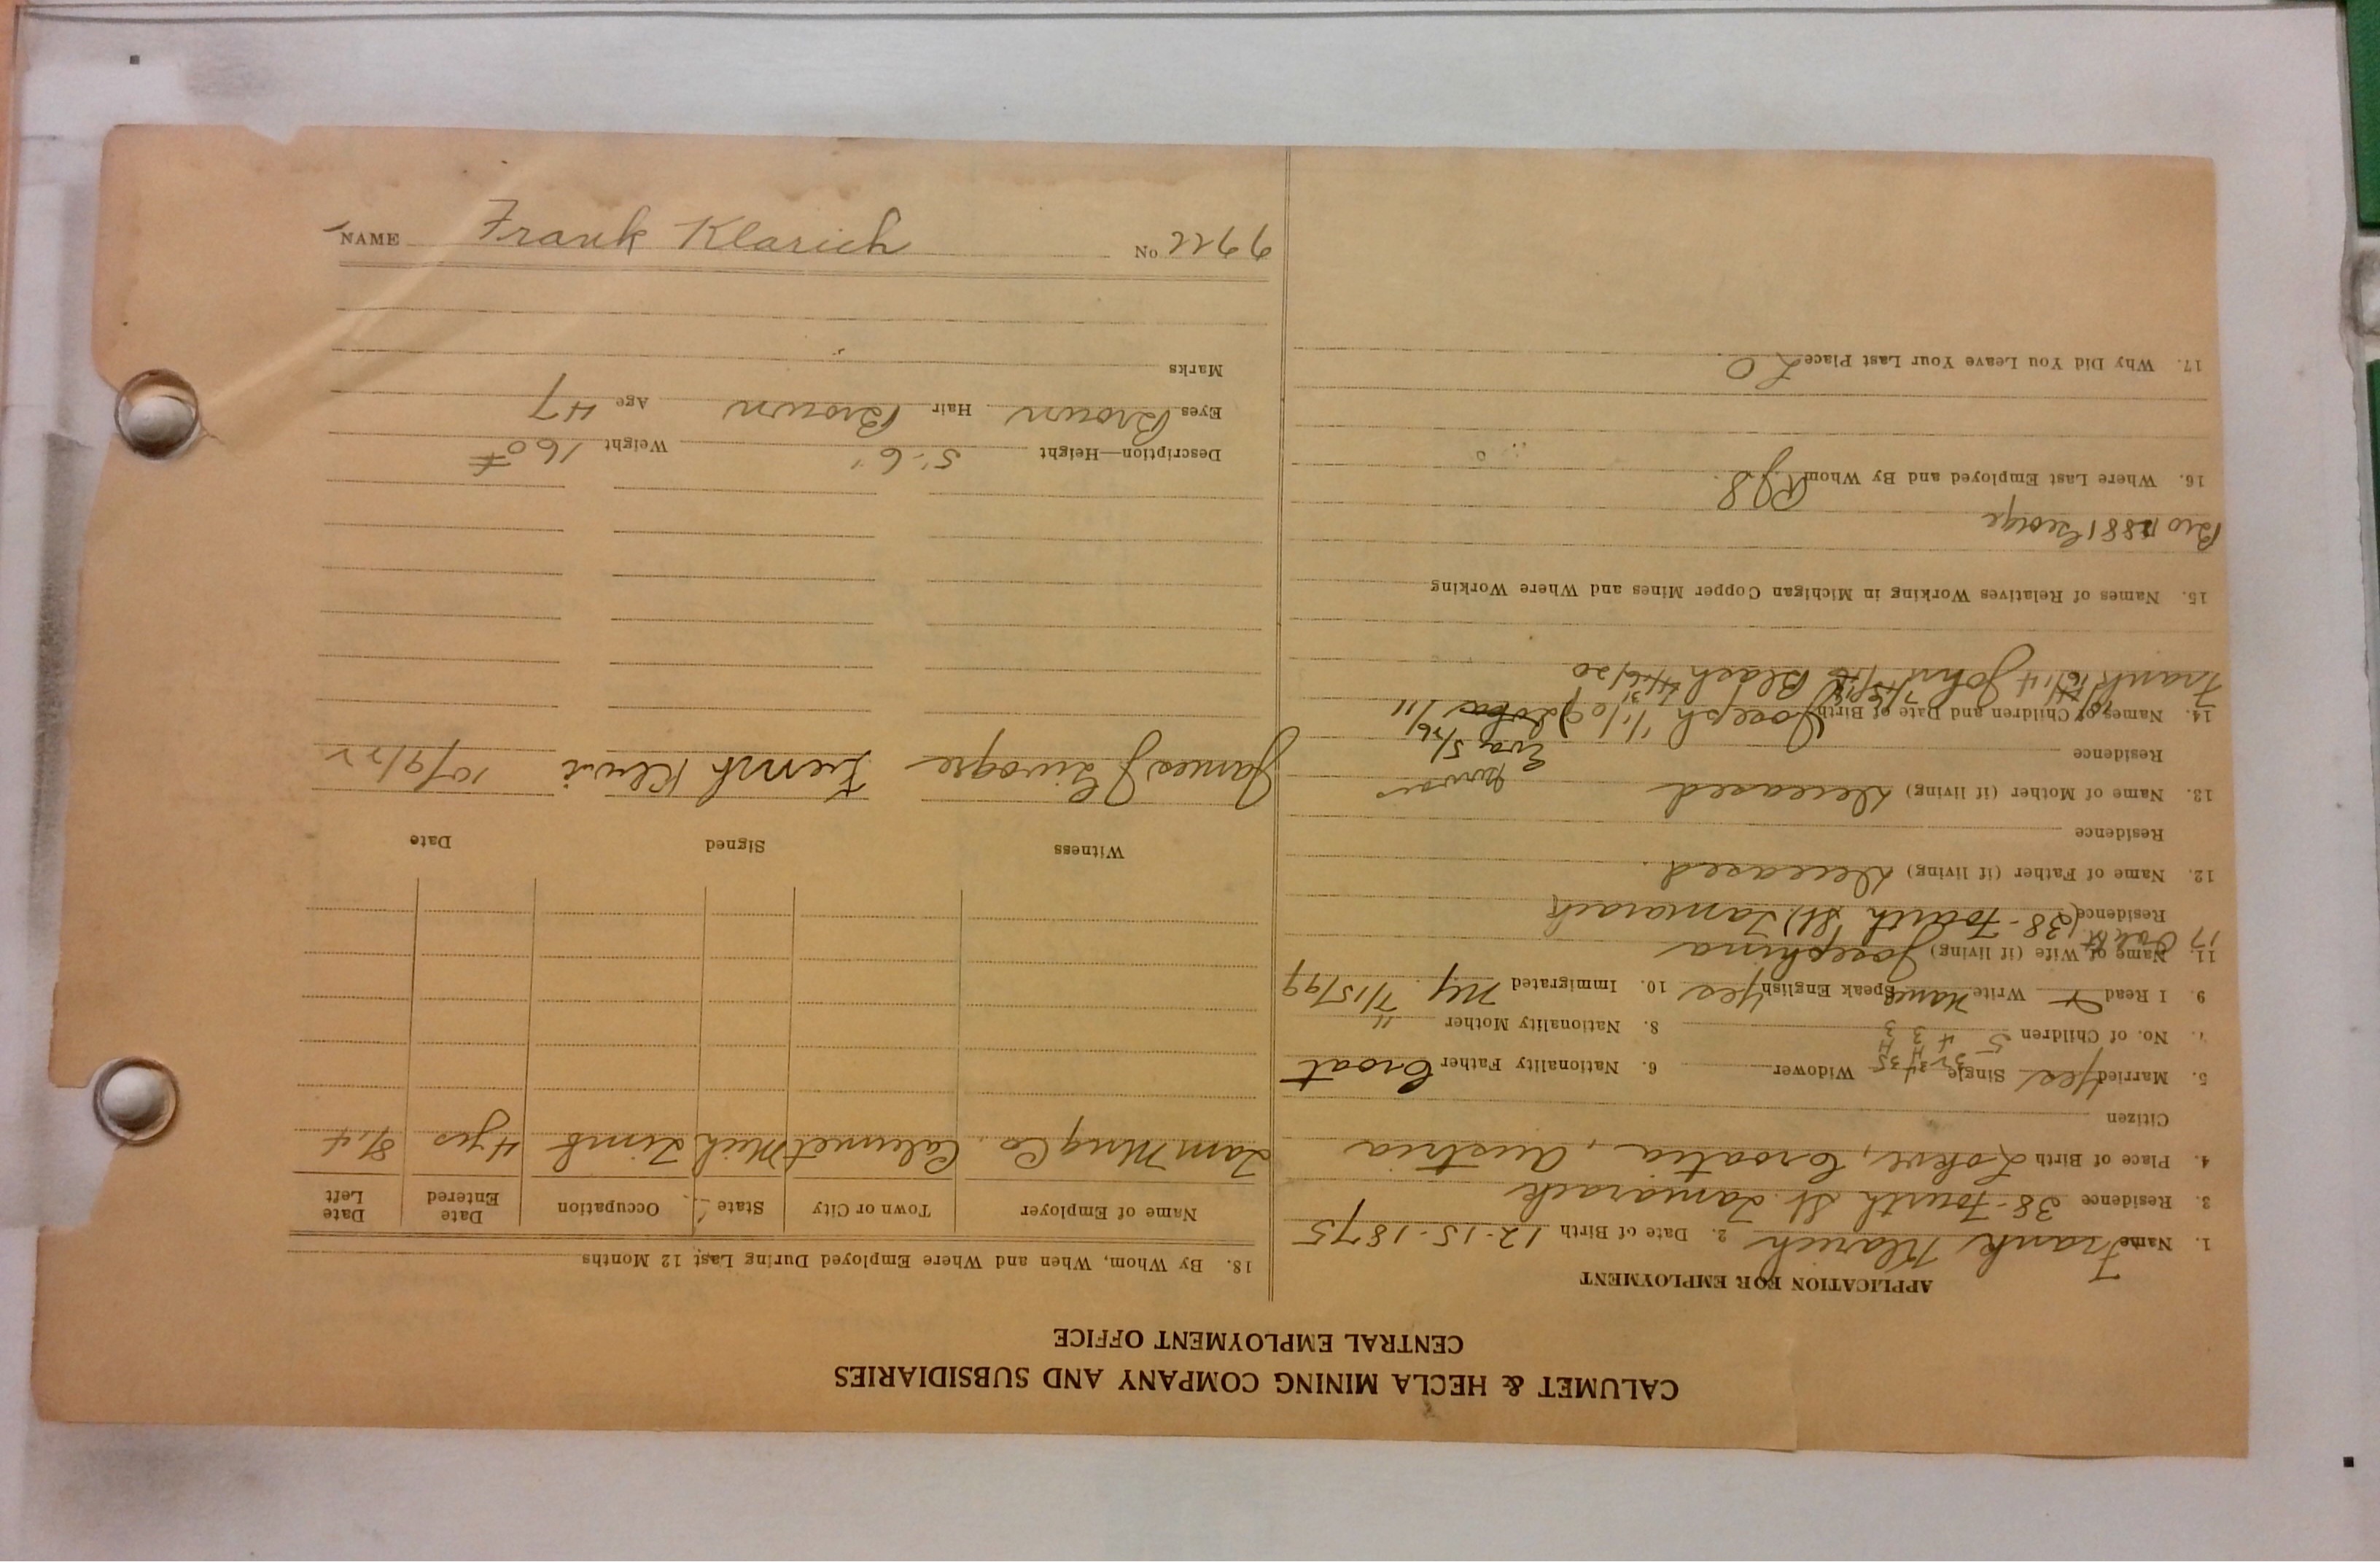 CALUMET & HECLA MINING COMPANY AND SUBSIDIARIES
CENTRAL EMPLOYMENT OFFICE
APPLICATION FOR EMPLOYMENT
1. Name Frank Klarich 2. Date of Birth 12-15-1875
3. Residence 38-Fourth St Tamarack
4. Place of Birth Lokve, Croatia, Austria
Citizen
5. Married Yes Single Widower 6. Nationality Father Croat
7. No. of Children 5 4 3 3 8. Nationality Mother "
9. I Read Write Name Speak English Yes 10. Immigrated NY 7/15/99
11. Name of Wife (if living) Josephina
17 Oak St
Residence (38-Fourth St) Tamarack
12. Name of Father (if living) Deceased
Residence
13. Name of Mother (if living) Deceased
Residence
Eva 5/26/
14. Names of Children and Date of Birth Joseph 1/1/09
Frank John
15. Names of Relatives Working in Michigan Copper Mines and Where Working
Bro George
16. Where Last Employed and By Whom
17. Why Did You Leave Your Last Place LO
18. By Whom, When and Where Employed During Last 12 Months
Name of Employer Town or City State Occupation Date Entered Date Left
Tam Mng Co. Calumet Mich Timb 4 yrs
Witness Signed Date
James J 10/9/22
Description—Height 5'-6" Weight 160#
Eyes Brown Hair Brown Age 47
Marks
NAME Frank Klarich No